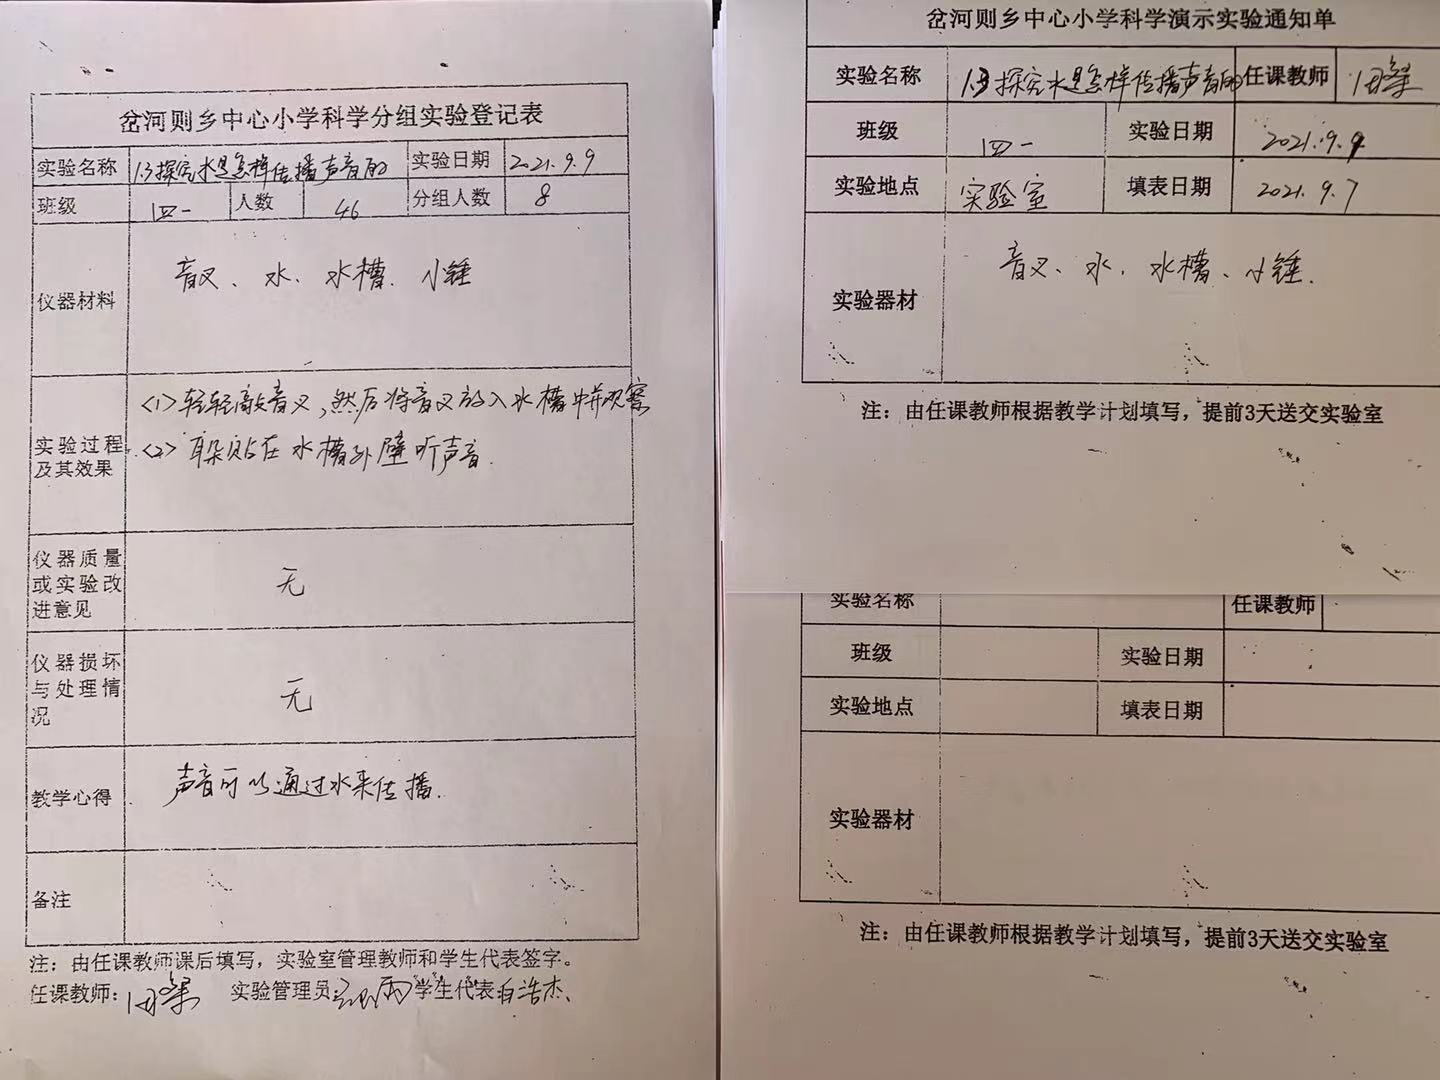 岔河则乡中心小学科学分组实验登记表
实验名称 1.3探究水是怎样传播声音的 实验日期 2021.9.9
班级 四一 人数 46 分组人数 8
仪器材料 音叉、水、水槽、小锤
实验过程及其效果
<1>轻轻敲音叉,然后将音叉放入水槽中并观察
<2>耳朵贴在水槽外壁听声音.
仪器质量或实验改进意见 无
仪器损坏与处理情况 无
教学心得 声音可以通过水来传播.
备注
注：由任课教师课后填写，实验室管理教师和学生代表签字。
任课教师: 实验管理员: 学生代表 白浩杰
岔河则乡中心小学科学演示实验通知单
实验名称 1.3探究水是怎样传播声音的 任课教师
班级 四一 实验日期 2021.9.9
实验地点 实验室 填表日期 2021.9.7
实验器材 音叉、水、水槽、小锤.
注：由任课教师根据教学计划填写，提前3天送交实验室
实验名称 任课教师
班级 实验日期
实验地点 填表日期
实验器材
注：由任课教师根据教学计划填写，提前3天送交实验室